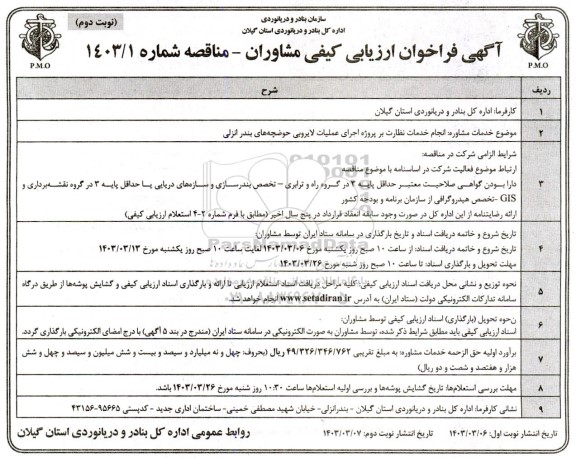 سازمان بنادر و دریانوردی
اداره کل بنادر و دریانوردی استان گیلان
(نوبت دوم)
آگهی فراخوان ارزیابی کیفی مشاوران - مناقصه شماره ۱۴۰۳/۱
P.M.O
P.M.O
ردیف
شرح
۱
کارفرما: اداره کل بنادر و دریانوردی استان گیلان
۲
موضوع خدمات مشاوره: انجام خدمات نظارت بر پروژه اجرای عملیات لایروبی حوضچه‌های بندر انزلی
۳
شرایط الزامی شرکت در مناقصه:
ارتباط موضوع فعالیت شرکت در اساسنامه با موضوع مناقصه
دارا بودن گواهی صلاحیت معتبر حداقل پایه ۲ در گروه راه و ترابری - تخصص بندرسازی و سازه‌های دریایی یا حداقل پایه ۳ در گروه نقشه‌برداری و
GIS -تخصص هیدروگرافی از سازمان برنامه و بودجه کشور
ارائه رضایتنامه از این اداره کل در صورت وجود سابقه انعقاد قرارداد در پنج سال اخیر (مطابق با فرم شماره ۲-۴ استعلام ارزیابی کیفی)
۴
تاریخ شروع و خاتمه دریافت اسناد و تاریخ بارگذاری در سامانه ستاد ایران توسط مشاوران:
تاریخ شروع و خاتمه دریافت اسناد: از ساعت ۱۰ صبح روز یکشنبه مورخ ۱۴۰۳/۰۳/۰۶ لغایت ساعت ۱۰ صبح روز یکشنبه مورخ ۱۴۰۳/۰۳/۱۳
مهلت تحویل و بارگذاری اسناد: تا ساعت ۱۰ صبح روز شنبه مورخ ۱۴۰۳/۰۳/۲۶
۵
نحوه توزیع و نشانی محل دریافت اسناد ارزیابی کیفی: کلیه مراحل دریافت اسناد استعلام ارزیابی تا ارائه و بارگذاری اسناد ارزیابی کیفی و گشایش پوشه‌ها از طریق درگاه
سامانه تدارکات الکترونیکی دولت (ستاد ایران) به آدرس www.setadiran.ir انجام خواهد شد.
۶
نحوه تحویل (بارگذاری) اسناد ارزیابی کیفی توسط مشاوران:
اسناد ارزیابی کیفی باید مطابق شرایط ذکر شده، توسط مشاوران به صورت الکترونیکی در سامانه ستاد ایران (مندرج در بند ۵ آگهی) با درج امضای الکترونیکی بارگذاری گردد.
۷
برآورد اولیه حق الزحمه خدمات مشاوره: به مبلغ تقریبی ۴۹/۳۲۶/۳۴۶/۷۶۲ ریال (بحروف: چهل و نه میلیارد و سیصد و بیست و شش میلیون و سیصد و چهل و شش
هزار و هفتصد و شصت و دو ریال)
۸
مهلت بررسی استعلام‌ها: تاریخ گشایش پوشه‌ها و بررسی اولیه استعلام‌ها ساعت ۱۰:۳۰ روز شنبه مورخ ۱۴۰۳/۰۳/۲۶ باشد.
۹
نشانی کارفرما: اداره کل بنادر و دریانوردی استان گیلان - بندرانزلی- خیابان شهید مصطفی خمینی- ساختمان اداری جدید - کدپستی ۹۵۶۶۵-۴۳۱۵۶
تاریخ انتشار نوبت اول: ۱۴۰۳/۰۳/۰۶
تاریخ انتشار نوبت دوم: ۱۴۰۳/۰۳/۰۷
روابط عمومی اداره کل بنادر و دریانوردی استان گیلان